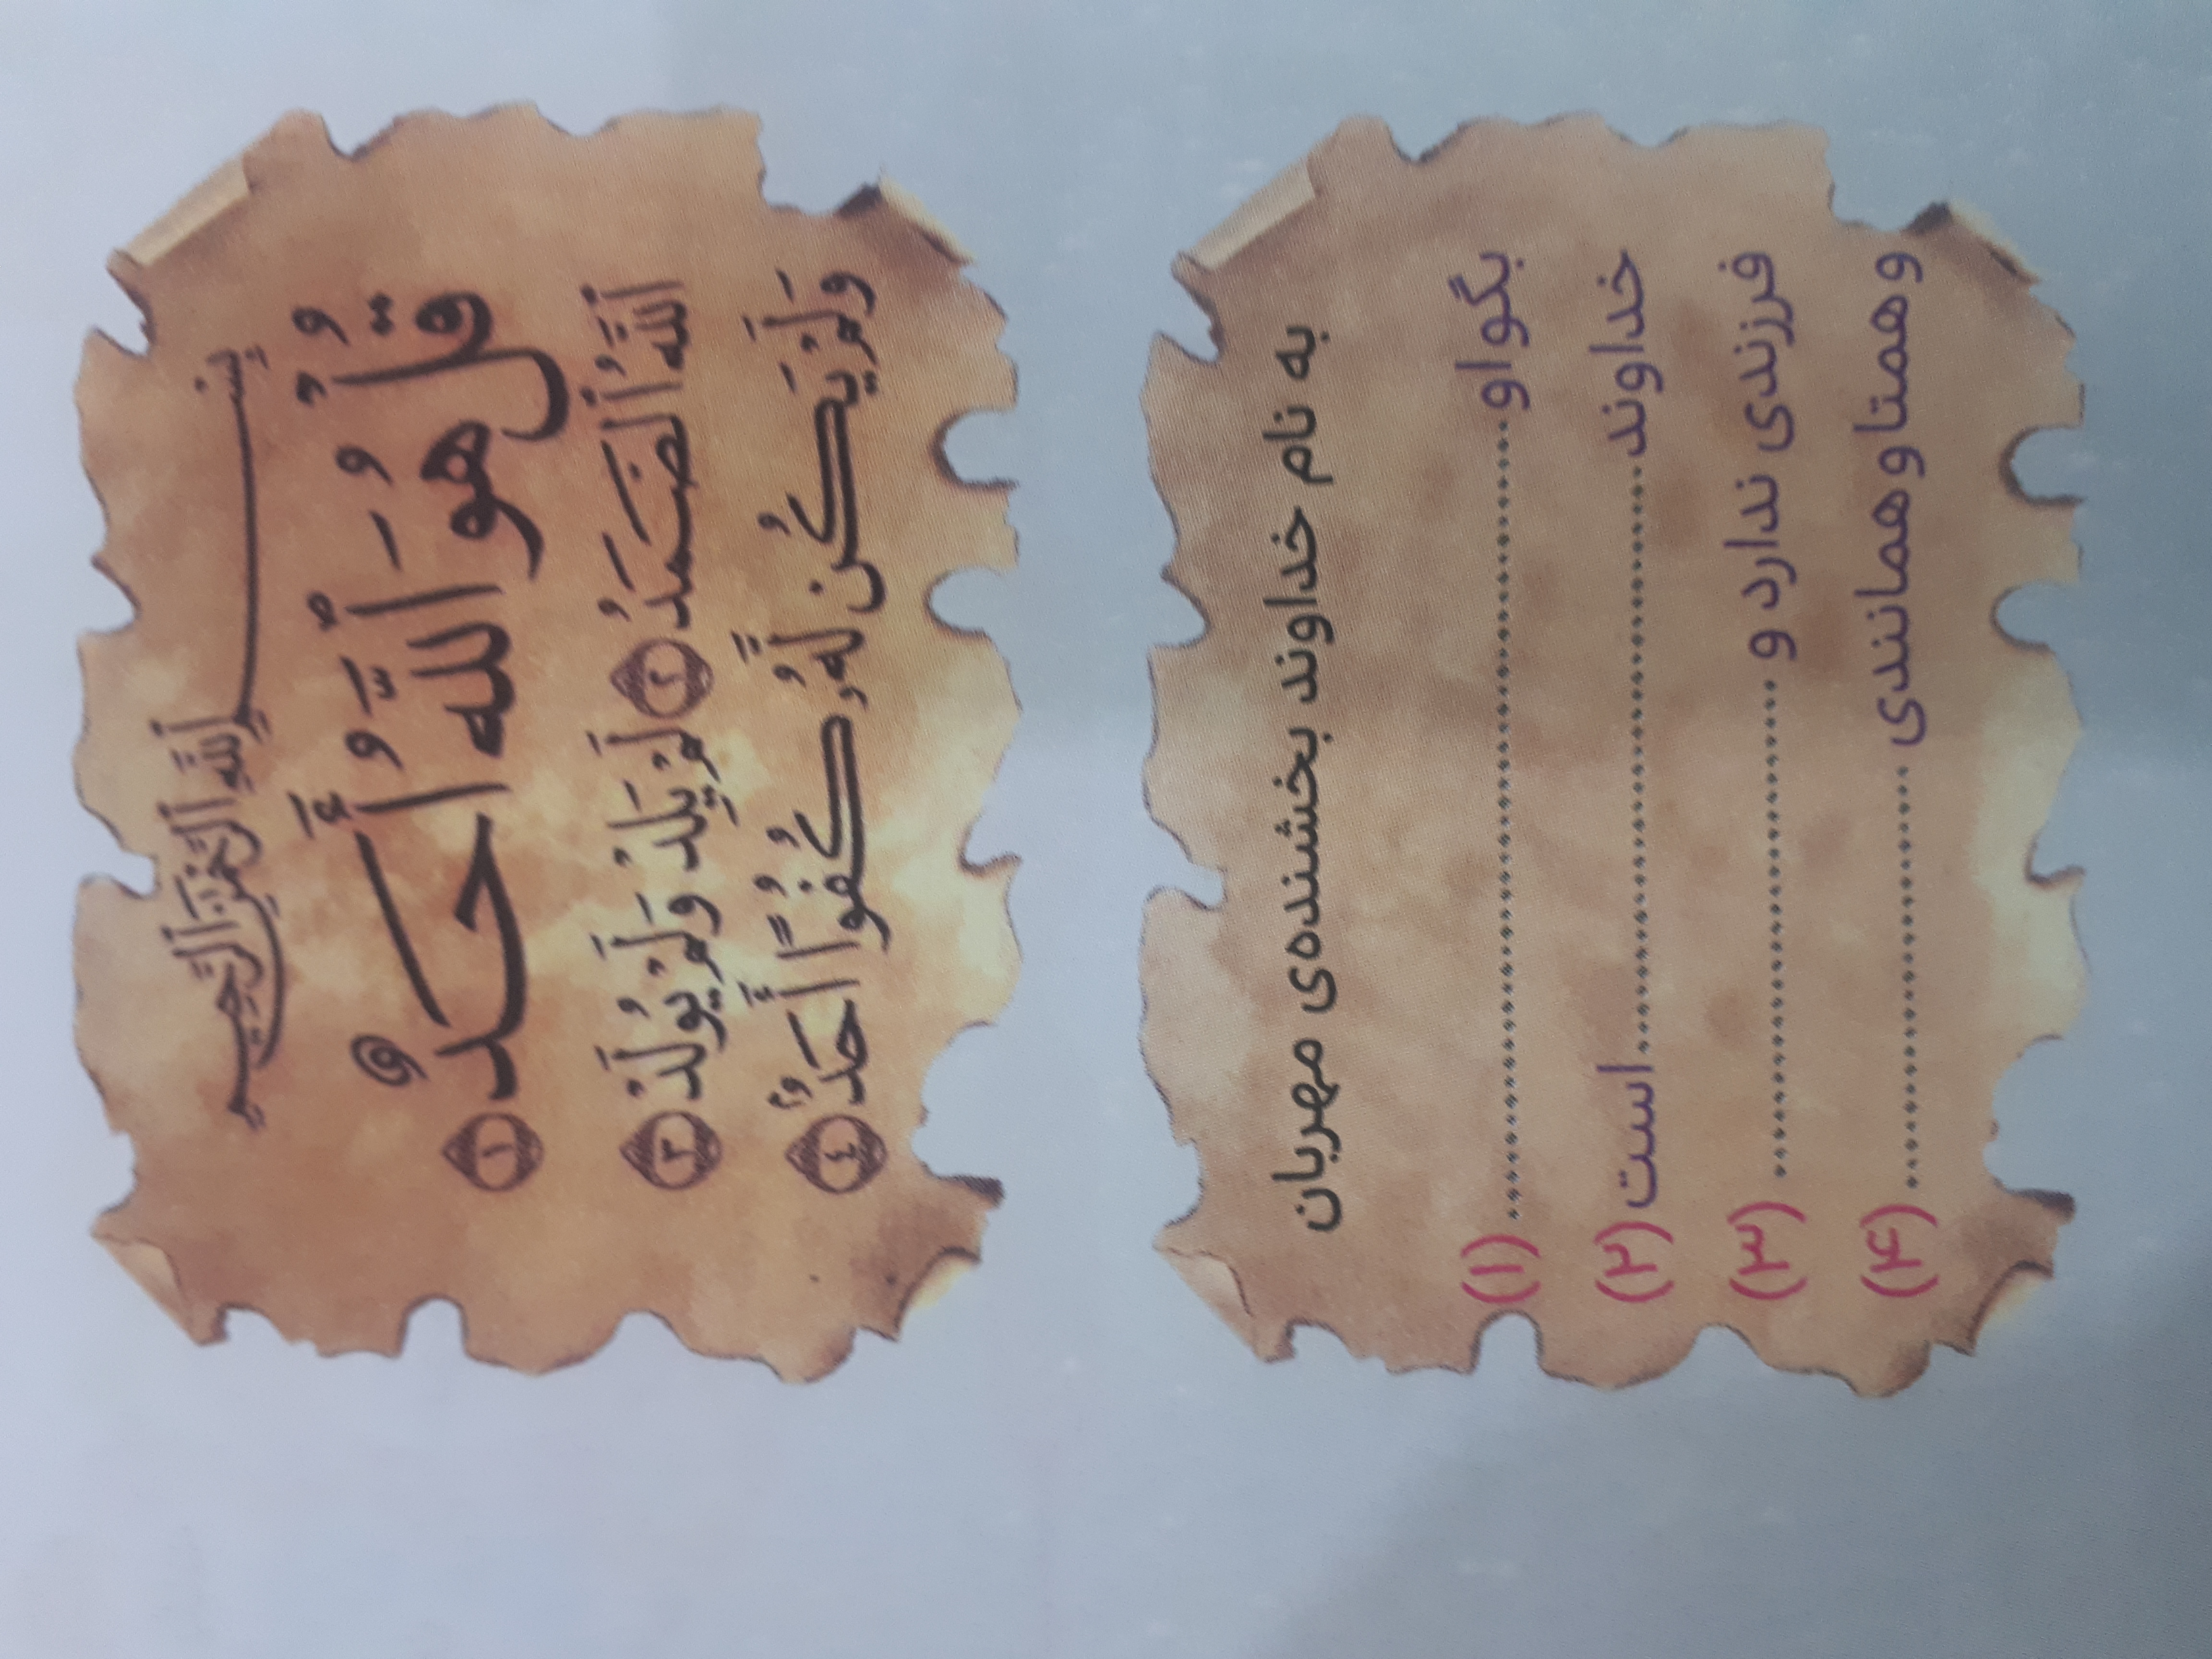 بِسْمِ ٱللَّهِ ٱلرَّحْمَٰنِ ٱلرَّحِيمِ
قُلْ هُوَ ٱللَّهُ أَحَدٌ ١
ٱللَّهُ ٱلصَّمَدُ ٢ لَمْ يَلِدْ وَلَمْ يُولَدْ ٣
وَلَمْ يَكُن لَّهُۥ كُفُوًا أَحَدٌۢ ٤
به نام خداوند بخشنده‌ی مهربان
بگو او........................................ (۱)
خداوند................................است (۲)
فرزندی ندارد و ........................... (۳)
و همتا و همانندی ....................... (۴)